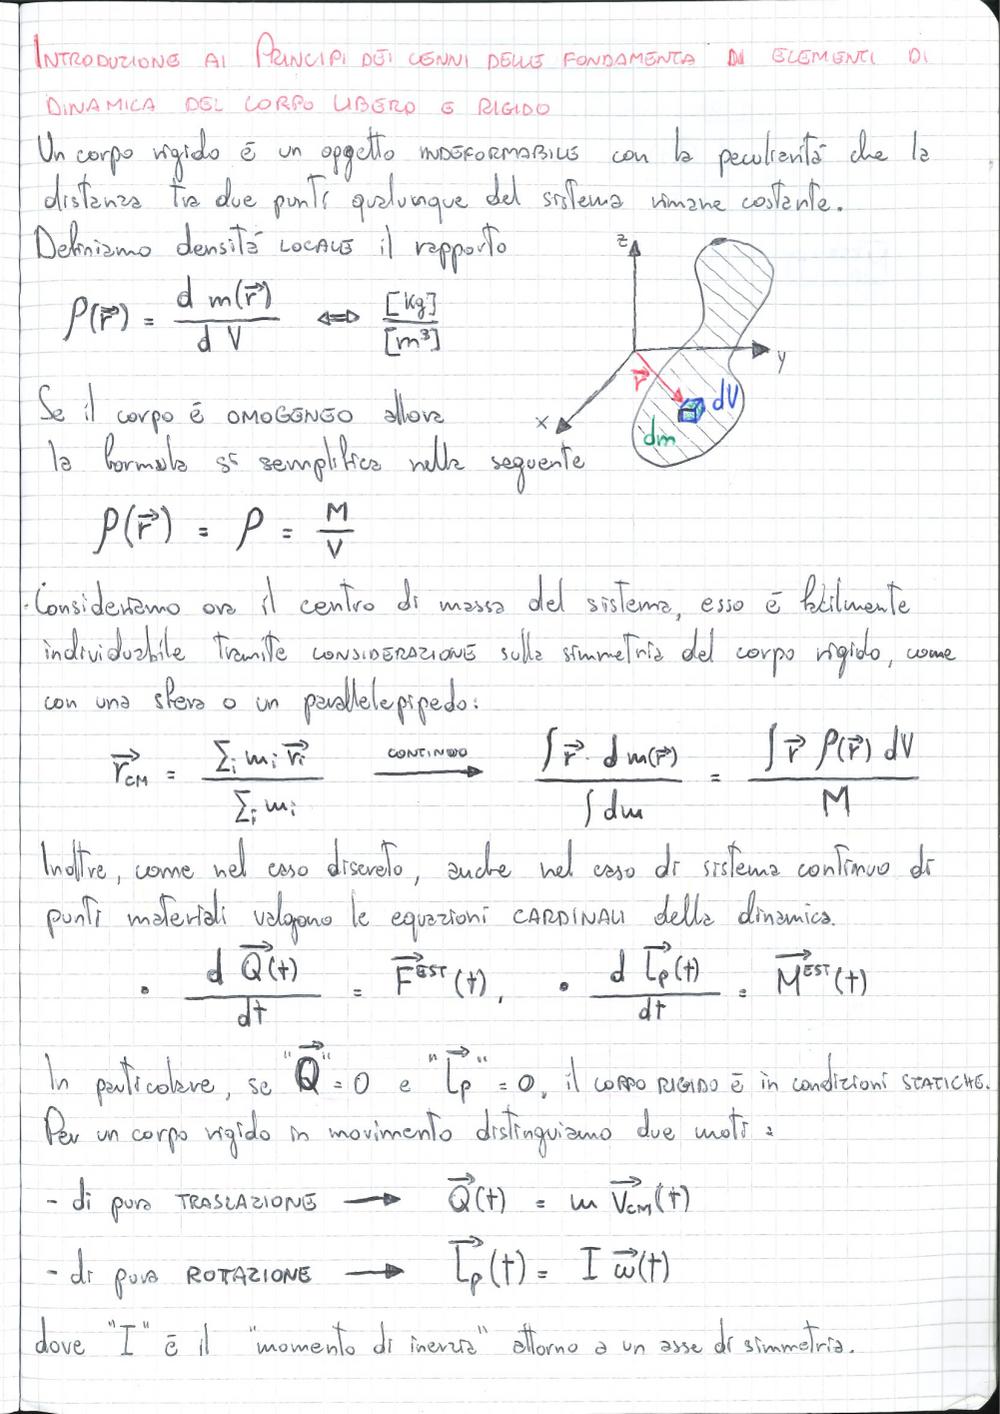 INTRODUZIONE AI PRINCIPI DEI CENNI DELLE FONDAMENTA DI ELEMENTI DI
DINAMICA DEL CORPO LIBERO E RIGIDO
Un corpo rigido è un oggetto INDEFORMABILE con la peculiarità che la
distanza tra due punti qualunque del sistema rimane costante.
Definiamo densità LOCALE il rapporto
ρ(r⃗) = d m(r⃗) / d V ⇔ [kg] / [m³]
z
y
x
r⃗
dV
dm
Se il corpo è OMOGENEO allora
la formula si semplifica nella seguente
ρ(r⃗) = ρ = M / V
Consideriamo ora il centro di massa del sistema, esso è facilmente
individuabile tramite CONSIDERAZIONE sulla simmetria del corpo rigido, come
con una sfera o un parallelepipedo:
r⃗CM = Σi mi r⃗i / Σi mi CONTINUO → ∫ r⃗ · d m(r⃗) / ∫ dm = ∫ r⃗ ρ(r⃗) dV / M
Inoltre, come nel caso discreto, anche nel caso di sistema continuo di
punti materiali valgono le equazioni CARDINALI della dinamica.
• d Q⃗(t) / dt = F⃗EST(t), • d L⃗p(t) / dt = M⃗EST(t)
In particolare, se "Q⃗" = 0 e "L⃗p" = 0, il CORPO RIGIDO è in condizioni STATICHE.
Per un corpo rigido in movimento distinguiamo due moti:
- di pura TRASLAZIONE → Q⃗(t) = m V⃗CM(t)
- di pura ROTAZIONE → L⃗p(t) = I ω⃗(t)
dove "I" è il "momento di inerzia" attorno a un asse di simmetria.